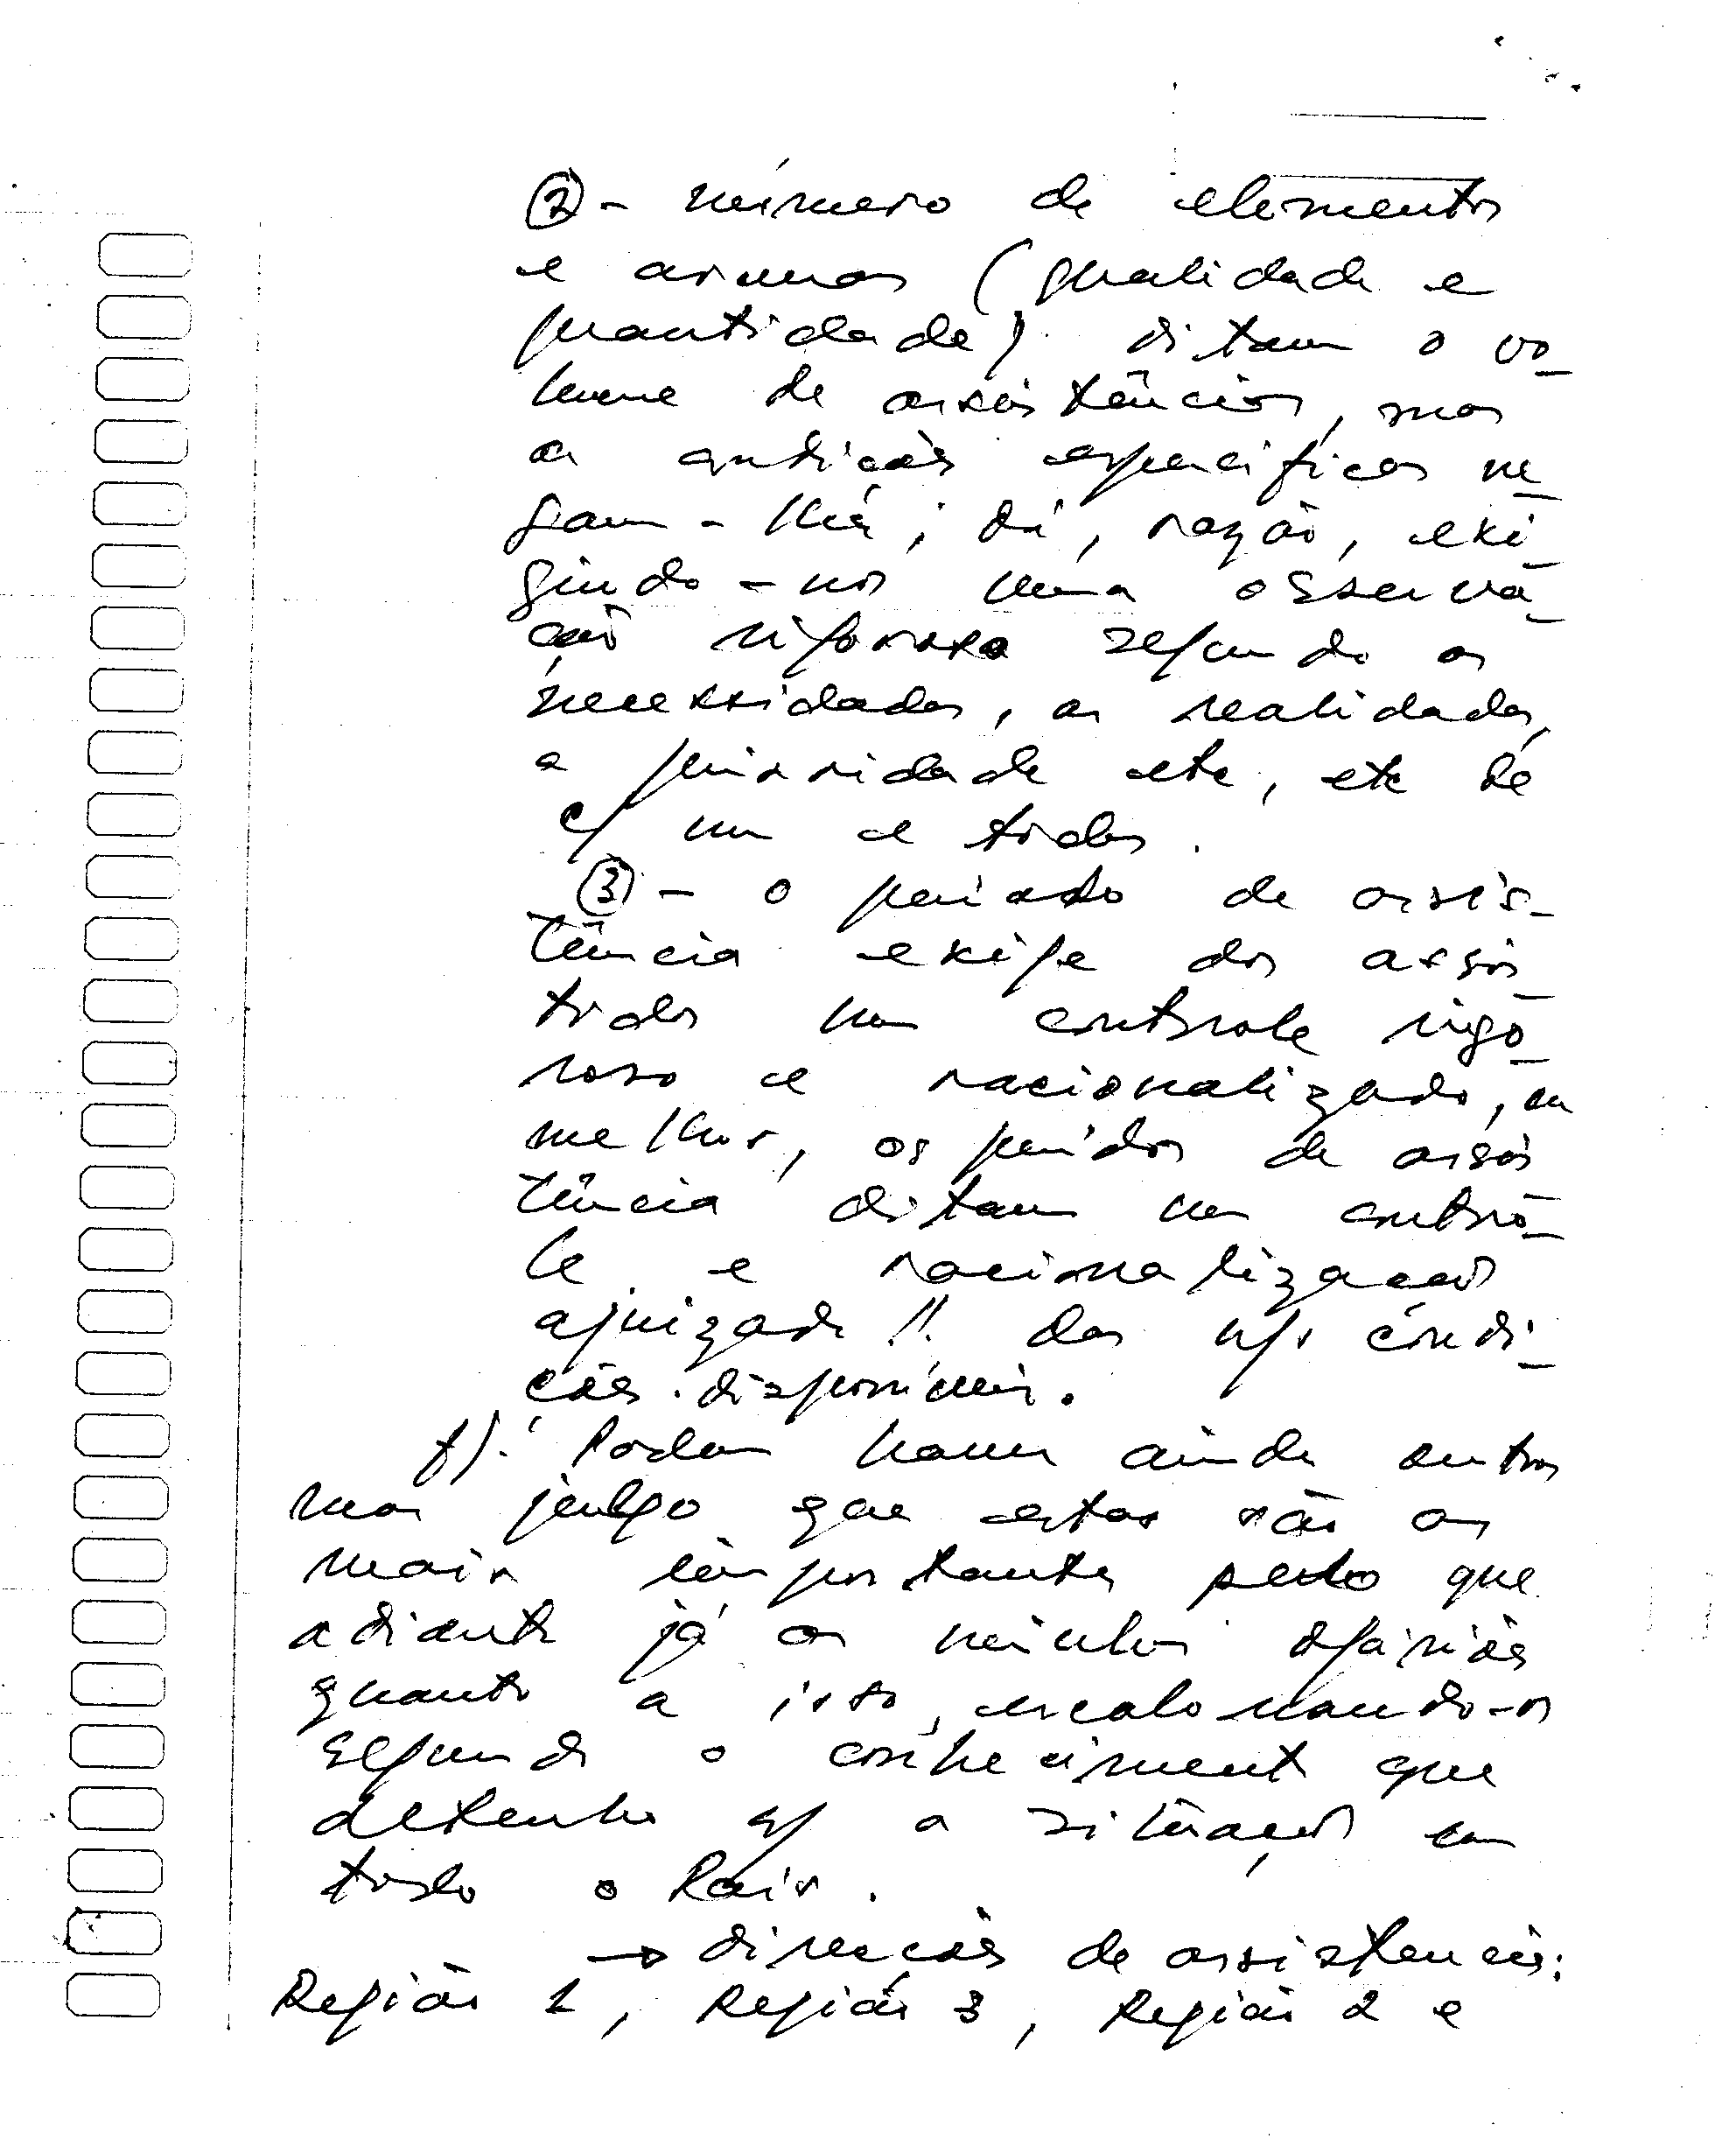 ② - número de elementos
e armas (qualidade e
quantidade) ditam o vo-
lume de assistências, mas
as condições específicas ne-
gam-lhe; dá, razão, exi-
gindo-nos uma observa-
ção rigorosa segundo as
necessidades, as realidades,
a prioridade etc, etc de
c/ um e todos.
③ - o período de assis-
tência exige dos assis-
tidos um controle rigo-
roso e racionalizado, ou
melhor, os períodos de assis-
tência ditam um contro-
le e racionalização
ajuizada!! das n/s condi-
ções disponíveis.
f). Podem haver ainda outros
mas julgo que estas são as
mais importantes pelo que
adiante já as minhas opiniões
quanto a isto, escalonando-os
segundo o conhecimento que
detenho s/ a situação em
todo o País.
→ direcções de assistencia:
Região 1, Região 3, Região 2 e